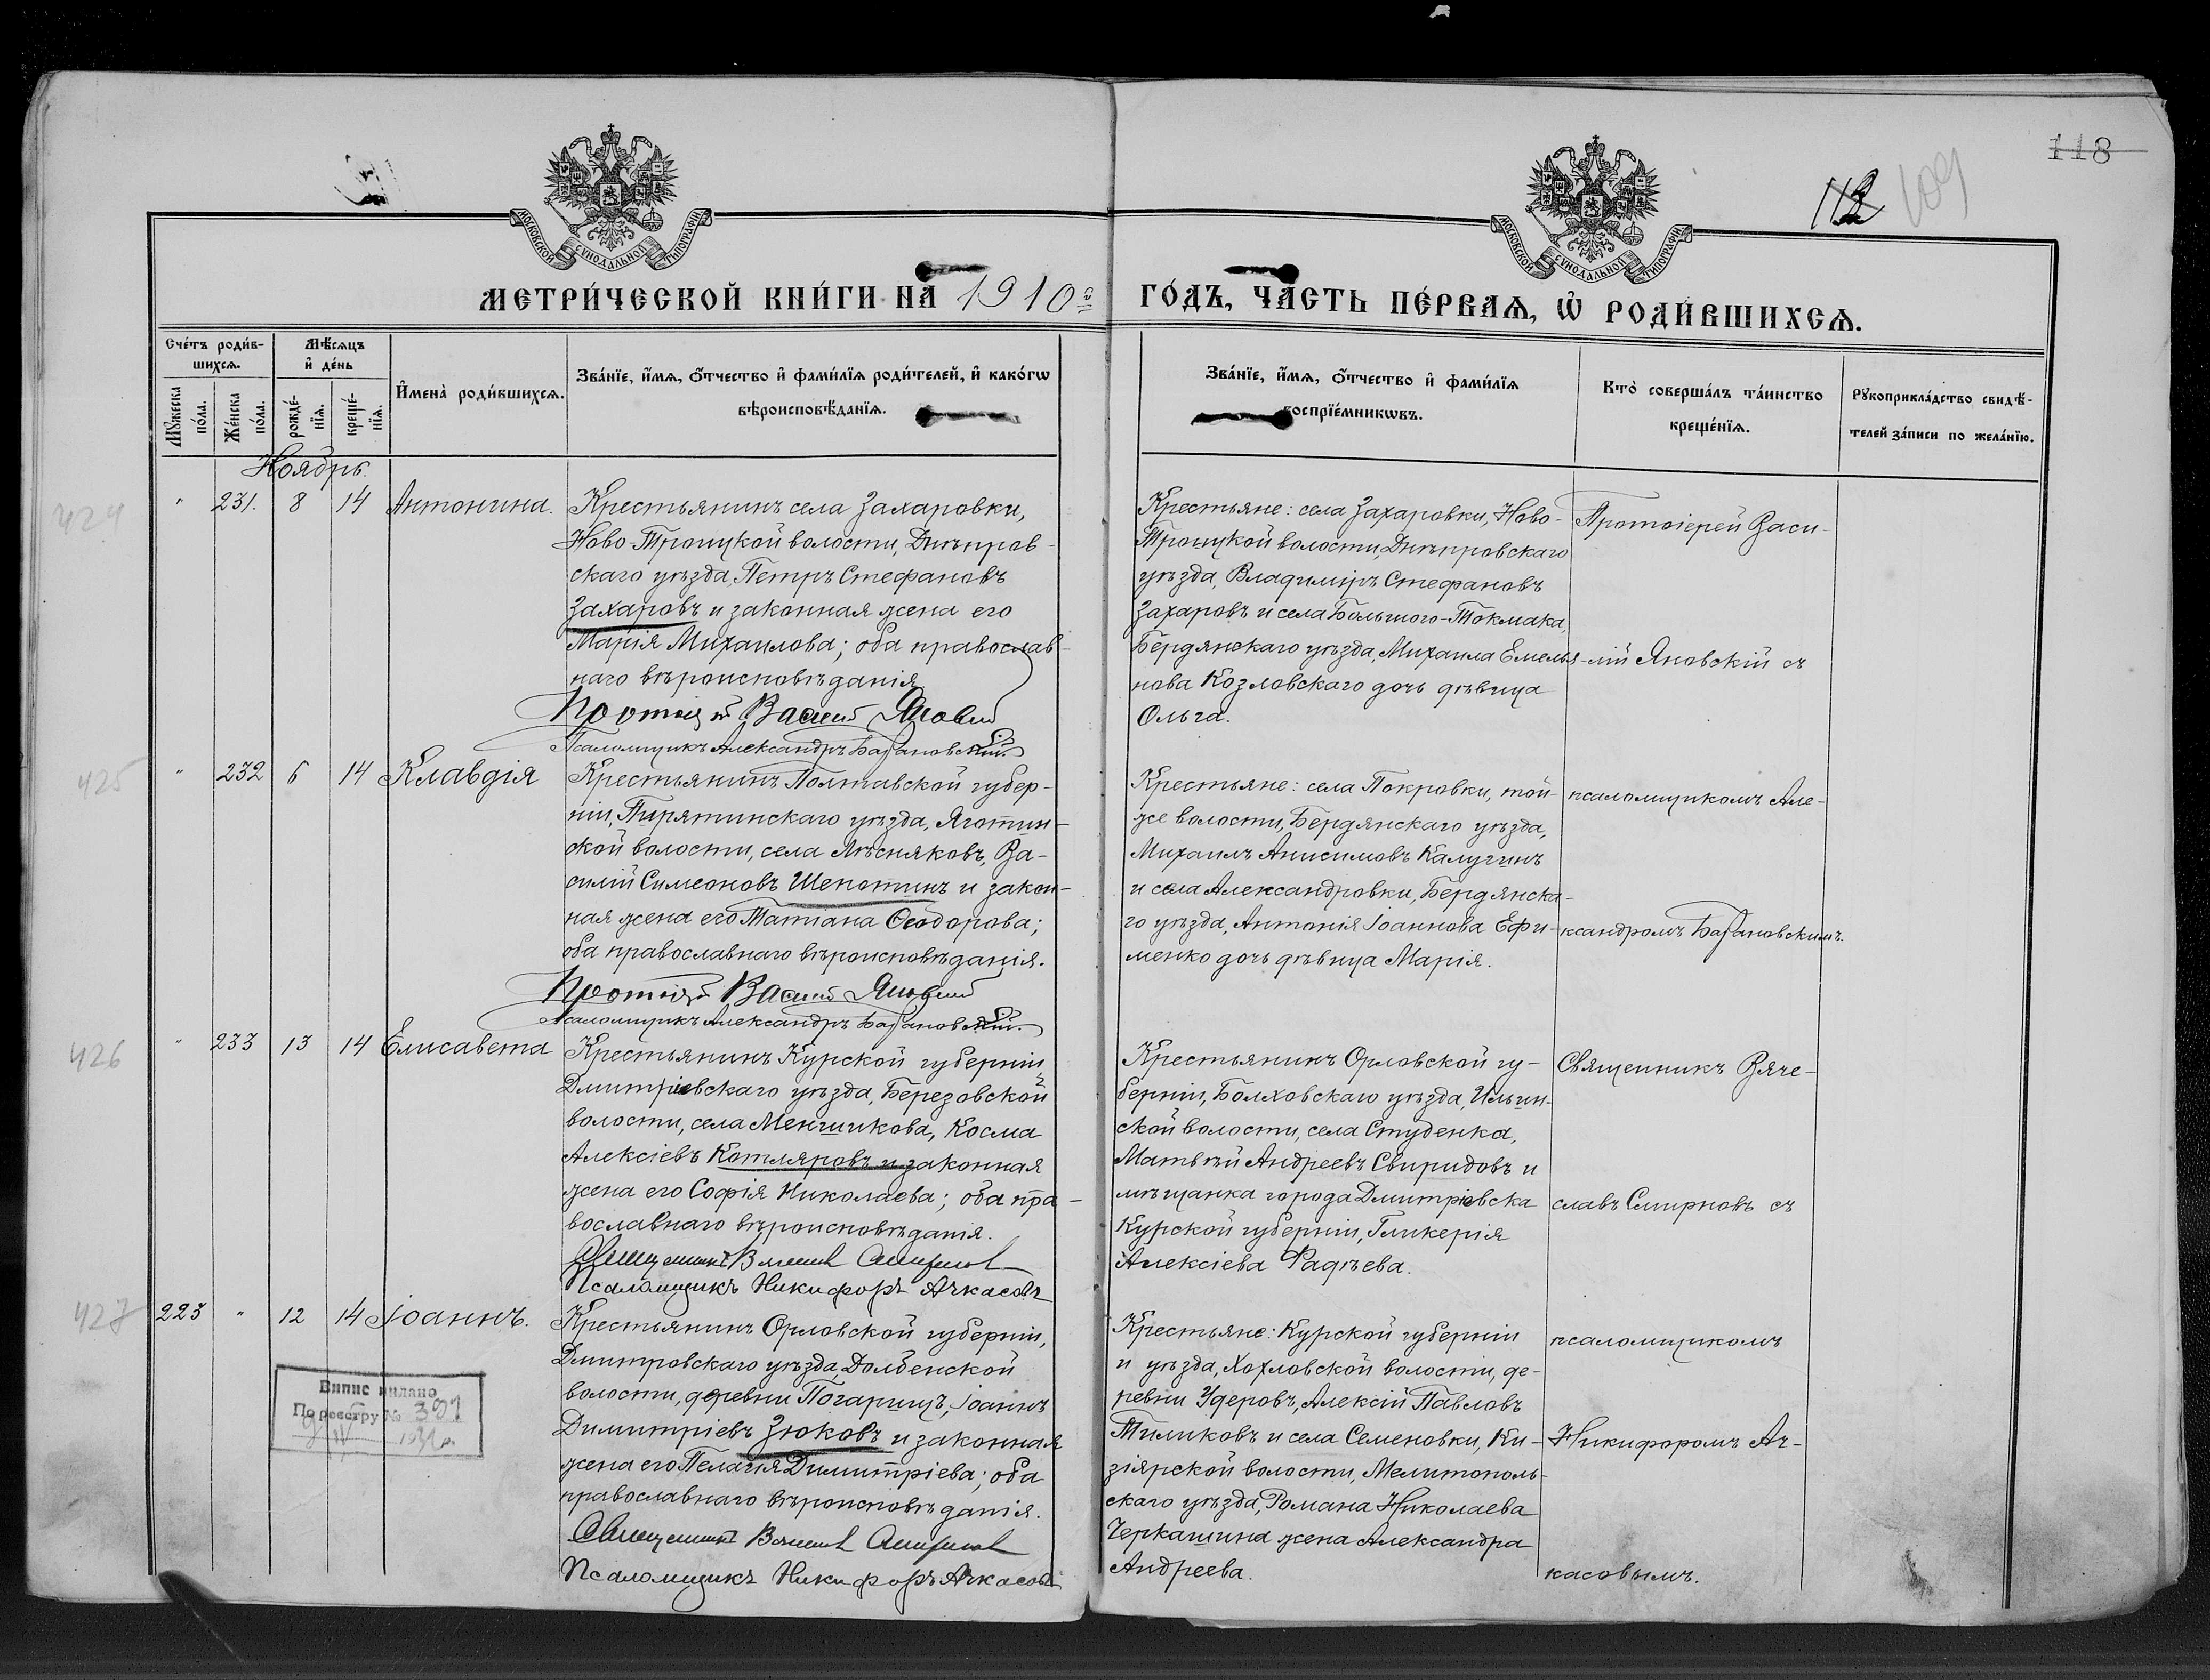 118
112
109
МОСКОВСКОЙ СѴНОДАЛЬНОЙ ТИПОГРАФІИ
МОСКОВСКОЙ СѴНОДАЛЬНОЙ ТИПОГРАФІИ
МЕТРИ́ЧЕСКОЙ КНИ́ГИ НА 1910 г.
ГО́ДЪ, ЧА́СТЬ ПЕ́РВАѦ, Ѡ҆ РОДИ́ВШИХСѦ.
Сче́тъ роди́в-
шихсѧ.
Мꙋ́жеска по́ла.
Же́нска по́ла.
Мѣ́сѧцъ
и҆ де́нь
рожде́-
нїѧ.
креще́-
нїѧ.
И҆мена̀ роди́вшихсѧ.
Зва́нїе, и҆́мѧ, ѻ҆́тчество и҆ фами́лїѧ роди́телей, и҆ како́гѡ
вѣроисповѣ́данїѧ.
Зва́нїе, и҆́мѧ, ѻ҆́тчество и҆ фами́лїѧ
воспрїе́мникѡвъ.
Кто̀ соверша́лъ та́инство
креще́нїѧ.
Рꙋкоприкла́дство свидѣ́-
телей за́писи по жела́нїю.
Ноябрь.
424
" 231. 8 14 Антонина.
Крестьянинъ села Захаровки,
Ново-Троицкой волости, Днѣпров-
скаго уѣзда, Петръ Стефановъ
Захаровъ и законная жена его
Марія Михаилова; оба православ-
наго вѣроисповѣданія
Протоіерей Василій Яновскій
Псаломщикъ Александръ Базановскій.
Крестьяне: села Захаровки, Ново-
Троицкой волости, Днѣпровскаго
уѣзда, Владиміръ Стефановъ
Захаровъ и села Большого-Токмака,
Бердянскаго уѣзда, Михаила Емелья-
нова Козловскаго дочь дѣвица
Ольга.
Протоіерей Васи-
лій Яновскій съ
425
" 232 6 14 Клавдія
Крестьянинъ Полтавской губер-
ніи, Пирятинскаго уѣзда, Яготин-
ской волости, села Лѣсняковъ, Ва-
силій Симеоновъ Шепотинъ и закон-
ная жена его Татіана Ѳеодорова;
оба православнаго вѣроисповѣданія.
Протоіерей Василій Яновскій
Псаломщикъ Александръ Базановскій.
Крестьяне: села Покровки, той-
же волости, Бердянскаго уѣзда,
Михаилъ Анисимовъ Калугинъ
и села Александровки, Бердянска-
го уѣзда, Антонія Іоаннова Ефи-
менко дочь дѣвица Марія.
псаломщикомъ Але-
ксандромъ Базановскимъ.
426
" 233 13 14 Елисавета
Крестьянинъ Курской губерніи,
Дмитріевскаго уѣзда, Березовской
волости, села Меншикова, Косма
Алексіевъ Котляровъ и законная
жена его Софія Николаева; оба пра-
вославнаго вѣроисповѣданія.
Священникъ Вячеславъ Смирновъ
Псаломщикъ Никифоръ Ачкасовъ
Крестьянинъ Орловской гу-
берніи, Болховскаго уѣзда, Ильин-
ской волости, села Студенка,
Матвѣй Андреевъ Свиридовъ и
мѣщанка города Дмитріевска
Курской губерніи, Гликерія
Алексіева Фадѣева.
Священникъ Вяче-
славъ Смирновъ съ
427
223 " 12 14 Іоаннъ.
Крестьянинъ Орловской губерніи,
Дмитровскаго уѣзда, Долбенской
волости, деревни Погарищъ, Іоаннъ
Димитріевъ Зюковъ и законная
жена его Пелагія Димитріева; оба
православнаго вѣроисповѣданія.
Священникъ Вячеславъ Смирновъ
Псаломщикъ Никифоръ Ачкасовъ
Крестьяне: Курской губерніи
и уѣзда, Хохловской волости, де-
ревни Удеровъ, Алексій Павловъ
Тиликовъ и села Семеновки, Ки-
зіярской волости, Мелитополь-
скаго уѣзда, Романа Николаева
Черкашина жена Александра
Андреева.
псаломщикомъ
Никифоромъ Ач-
касовымъ.
Випис видано
По реестру № 391